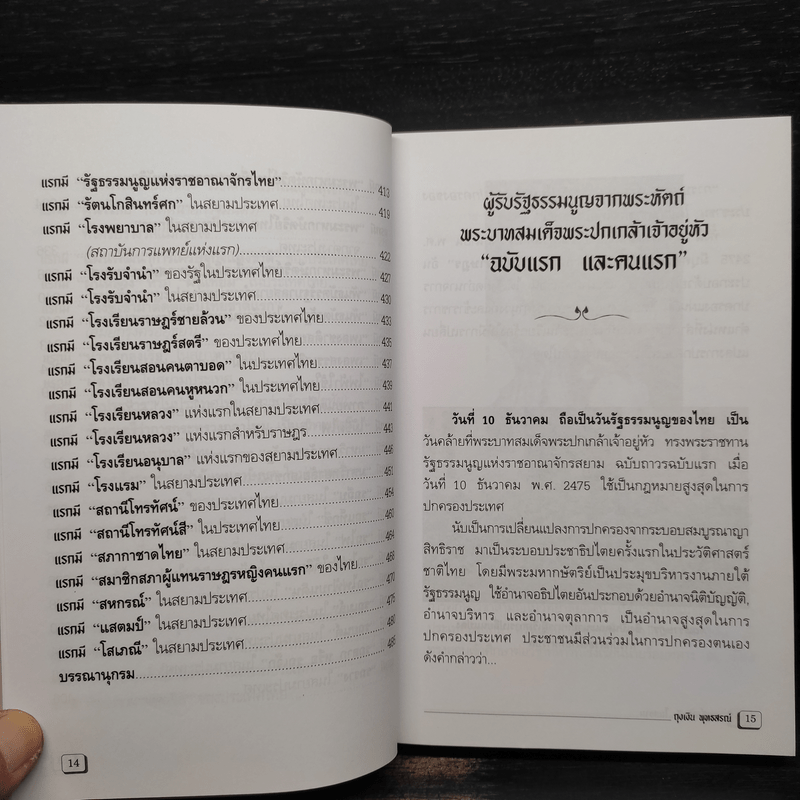 แรกมี “รัฐธรรมนูญแห่งราชอาณาจักรไทย”.......... 413
แรกมี “รัตนโกสินทร์ศก” ในสยามประเทศ.......... 419
แรกมี “โรงพยาบาล” ในสยามประเทศ
(สถาบันการแพทย์แห่งแรก).......... 422
แรกมี “โรงรับจำนำ” ของรัฐในประเทศไทย.......... 427
แรกมี “โรงรับจำนำ” ในสยามประเทศ.......... 430
แรกมี “โรงเรียนราษฎร์ชายล้วน” ของประเทศไทย.......... 433
แรกมี “โรงเรียนราษฎร์สตรี” ของประเทศไทย.......... 435
แรกมี “โรงเรียนสอนคนตาบอด” ในประเทศไทย.......... 437
แรกมี “โรงเรียนสอนคนหูหนวก” ในประเทศไทย.......... 439
แรกมี “โรงเรียนหลวง” แห่งแรกในสยามประเทศ.......... 441
แรกมี “โรงเรียนหลวง” แห่งแรกสำหรับราษฎร.......... 443
แรกมี “โรงเรียนอนุบาล” แห่งแรกของสยามประเทศ.......... 446
แรกมี “โรงแรม” ในสยามประเทศ.......... 451
แรกมี “สถานีโทรทัศน์” ของประเทศไทย.......... 454
แรกมี “สถานีโทรทัศน์สี” ในประเทศไทย.......... 460
แรกมี “สภากาชาดไทย” ในสยามประเทศ.......... 464
แรกมี “สมาชิกสภาผู้แทนราษฎรหญิงคนแรก” ของไทย.......... 468
แรกมี “สหกรณ์” ในสยามประเทศ.......... 470
แรกมี “แสตมป์” ในสยามประเทศ.......... 475
แรกมี “โสเภณี” ในสยามประเทศ.......... 480
บรรณานุกรม.......... 485
14
ผู้รับรัฐธรรมนูญจากพระหัตถ์
พระบาทสมเด็จพระปกเกล้าเจ้าอยู่หัว
“ฉบับแรก และคนแรก”
วันที่ 10 ธันวาคม ถือเป็นวันรัฐธรรมนูญของไทย เป็น
วันคล้ายที่พระบาทสมเด็จพระปกเกล้าเจ้าอยู่หัว ทรงพระราชทาน
รัฐธรรมนูญแห่งราชอาณาจักรสยาม ฉบับถาวรฉบับแรก เมื่อ
วันที่ 10 ธันวาคม พ.ศ. 2475 ใช้เป็นกฎหมายสูงสุดในการ
ปกครองประเทศ
นับเป็นการเปลี่ยนแปลงการปกครองจากระบอบสมบูรณาญา
สิทธิราช มาเป็นระบอบประชาธิปไตยครั้งแรกในประวัติศาสตร์
ชาติไทย โดยมีพระมหากษัตริย์เป็นประมุขบริหารงานภายใต้
รัฐธรรมนูญ ใช้อำนาจอธิปไตยอันประกอบด้วยอำนาจนิติบัญญัติ,
อำนาจบริหาร และอำนาจตุลาการ เป็นอำนาจสูงสุดในการ
ปกครองประเทศ ประชาชนมีส่วนร่วมในการปกครองตนเอง
ดังคำกล่าวว่า...
ถุงเงิน พุทธสรณ์ 15